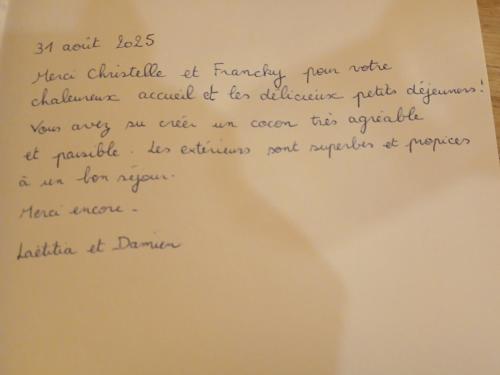 31 août 2025
Merci Christelle et Francky pour votre
chaleureux accueil et les délicieux petits déjeuners!
Vous avez su créer un cocon très agréable
et paisible. Les extérieurs sont superbes et propices
à un bon séjour.
Merci encore.
Laëtitia et Damien